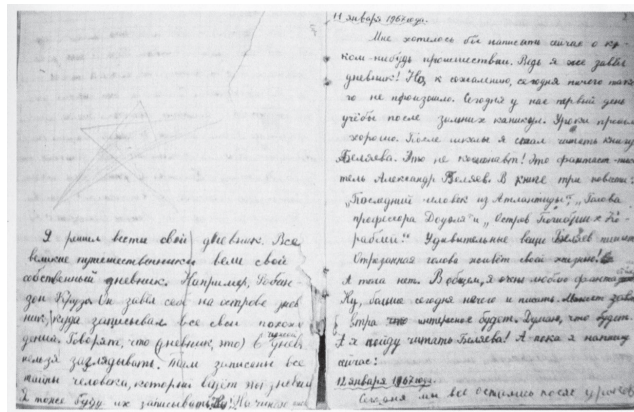 Я решил вести свой дневник. Все
великие путешественники вели свой
собственный дневник. Например, Робин-
зон Крузо. Он завёл себе на острове днев
ник, куда записывал все свои похож
дения. Говорят, что (дневник, это) в чужой дневн
нельзя заглядывать. Там записаны все
тайны человека, который ведёт этот дневни
Я тоже буду их записывать. Но
11 января 1967 года.
Мне хотелось бы написать сейчас о ка-
ком-нибудь происшествии. Ведь я же завёл
дневник! Но, к сожалению, сегодня ничего тако
го не произошло. Сегодня у нас первый день
учёбы после зимних каникул. Уроки прошли
хорошо. После школы я стал читать книгу
Беляева. Это не космонавт! Это фантаст-писа
тель Александр Беляев. В книге три повести:
"Последний человек из Атлантиды", "Голова
профессора Доуэля" и "Остров Погибших Ко-
раблей." Удивительные вещи Беляев пишет
Отрезанная голова живёт своей жизнью!
А тела нет. В общем, я очень люблю фантаст
Ну, больше сегодня нечего и писать. Может зав
втра что интересное будет. Думаю, что будет.
А я пойду читать Беляева! А пока я напишу
сейчас:
12 января 1967 года.
Сегодня мы все остались после уроков